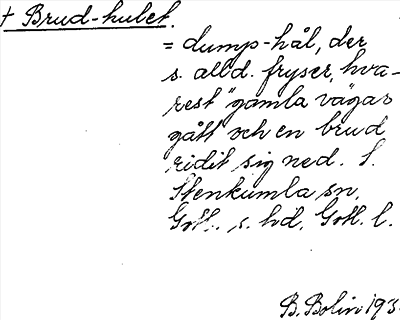 † Brud-hulet.
= dump-hål, der
s. alld. fryser, hva-
rest "gamla vägar
gått" och en brud
ridit sig ned. S.
Stenkumla sn,
Gotl. s. hd, Gotl. l.
B. Bolin 193